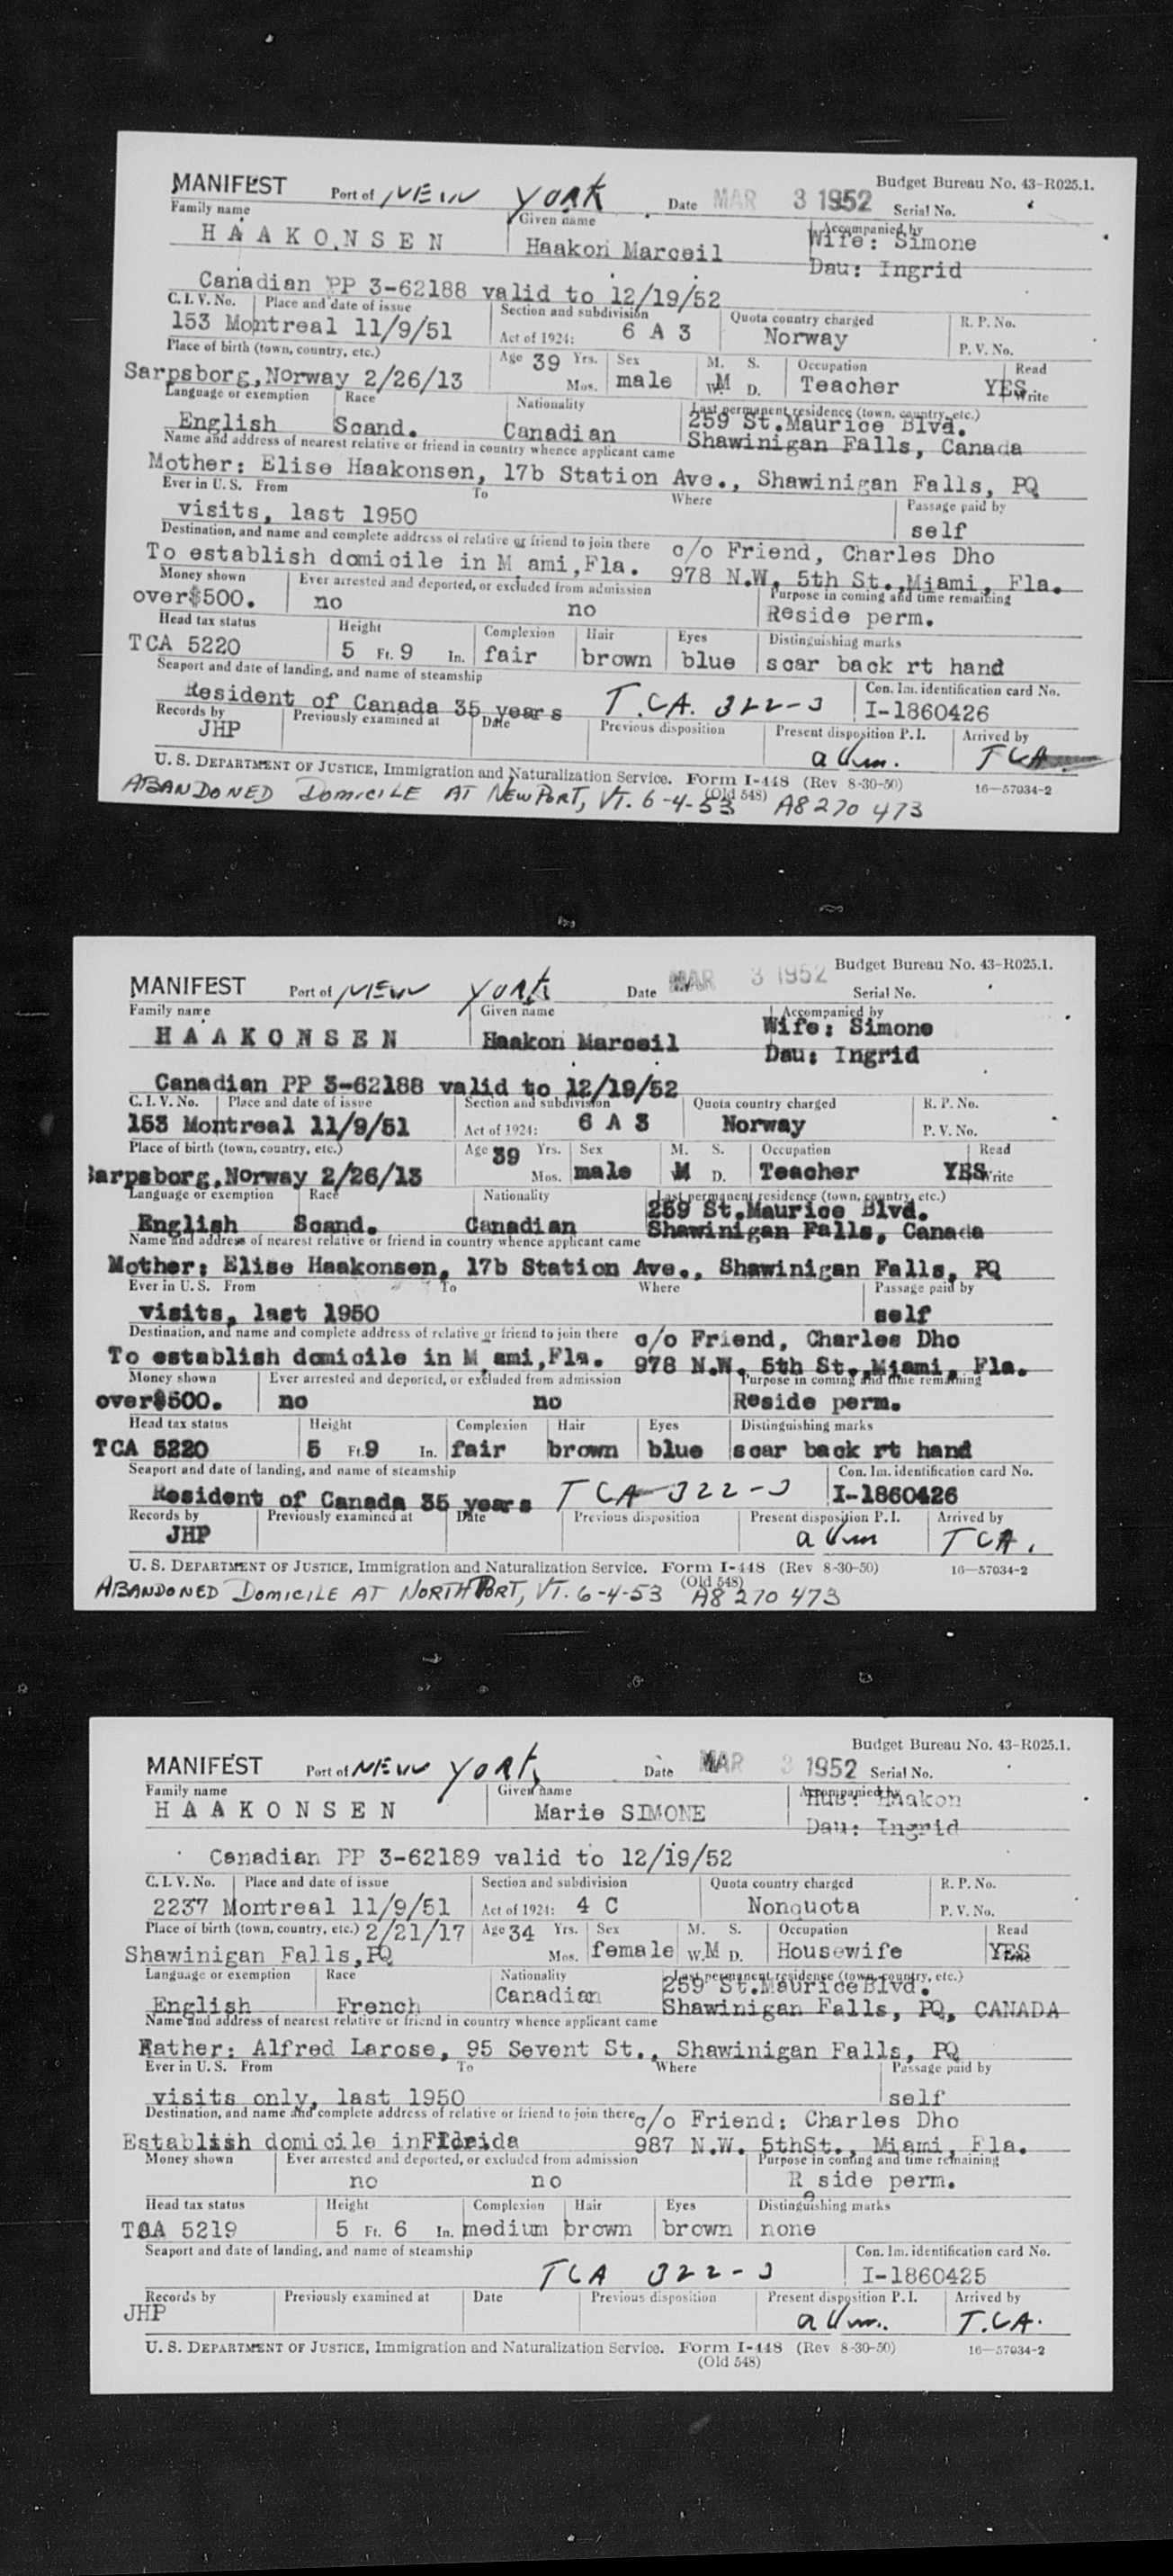 MANIFEST Port of NEW YORK Date MAR 3 1952 Budget Bureau No. 43-R025.1.
Serial No.
Family name Given name Accompanied by
HAAKONSEN Haakon Marceil Wife: Simone
Dau: Ingrid
Canadian PP 3-62188 valid to 12/19/52
C. I. V. No. Place and date of issue Section and subdivision Quota country charged R. P. No.
153 Montreal 11/9/51 Act of 1924: 6 A 3 Norway P. V. No.
Place of birth (town, country, etc.) Age 39 Yrs. Sex M. S. Occupation Read
Sarpsborg,Norway 2/26/13 Mos. male W. M D. Teacher YES Write
Language or exemption Race Nationality Last permanent residence (town, country, etc.)
259 St.Maurice Blvd.
English Scand. Canadian Shawinigan Falls, Canada
Name and address of nearest relative or friend in country whence applicant came
Mother: Elise Haakonsen, 17b Station Ave., Shawinigan Falls, PQ
Ever in U. S. From To Where Passage paid by
visits, last 1950 self
Destination, and name and complete address of relative or friend to join there c/o Friend, Charles Dho
To establish domicile in M ami,Fla. 978 N.W. 5th St.,Miami, Fla.
Money shown Ever arrested and deported, or excluded from admission Purpose in coming and time remaining
over$500. no no Reside perm.
Head tax status Height Complexion Hair Eyes Distinguishing marks
TCA 5220 5 Ft. 9 In. fair brown blue scar back rt hand
Seaport and date of landing, and name of steamship Con. Im. identification card No.
Resident of Canada 35 years T.CA. 322-3 I-1860426
Records by Previously examined at Date Previous disposition Present disposition P. I. Arrived by
JHP adm. TCA
U. S. DEPARTMENT OF JUSTICE, Immigration and Naturalization Service. Form I-448 (Rev 8-30-50) 16—57034-2
(Old 548)
ABANDONED DOMICILE AT NEWPORT, VT. 6-4-53 A8 270 473
MANIFEST Port of NEW YORK Date MAR 3 1952 Budget Bureau No. 43-R025.1.
Serial No.
Family name Given name Accompanied by
HAAKONSEN Haakon Marceil Wife: Simone
Dau: Ingrid
Canadian PP 3-62188 valid to 12/19/52
C. I. V. No. Place and date of issue Section and subdivision Quota country charged R. P. No.
153 Montreal 11/9/51 Act of 1924: 6 A 3 Norway P. V. No.
Place of birth (town, country, etc.) Age 39 Yrs. Sex M. S. Occupation Read
Sarpsborg,Norway 2/26/13 Mos. male M D. Teacher YES Write
Language or exemption Race Nationality Last permanent residence (town, country, etc.)
259 St.Maurice Blvd.
English Scand. Canadian Shawinigan Falls, Canada
Name and address of nearest relative or friend in country whence applicant came
Mother: Elise Haakonsen, 17b Station Ave., Shawinigan Falls, PQ
Ever in U. S. From To Where Passage paid by
visits, last 1950 self
Destination, and name and complete address of relative or friend to join there c/o Friend, Charles Dho
To establish domicile in M ami,Fla. 978 N.W. 5th St.,Miami, Fla.
Money shown Ever arrested and deported, or excluded from admission Purpose in coming and time remaining
over$500. no no Reside perm.
Head tax status Height Complexion Hair Eyes Distinguishing marks
TCA 5220 5 Ft. 9 In. fair brown blue scar back rt hand
Seaport and date of landing, and name of steamship Con. Im. identification card No.
Resident of Canada 35 years TCA-322-3 I-1860426
Records by Previously examined at Date Previous disposition Present disposition P. I. Arrived by
JHP adm TCA.
U. S. DEPARTMENT OF JUSTICE, Immigration and Naturalization Service. Form I-448 (Rev 8-30-50) 16—57034-2
(Old 548)
ABANDONED DOMICILE AT NORTHPORT, VT. 6-4-53 A8 270 473
MANIFEST Port of NEW YORK Date MAR 3 1952 Budget Bureau No. 43-R025.1.
Serial No.
Family name Given name Accompanied by
HAAKONSEN Marie SIMONE Hus: Haakon
Dau: Ingrid
Canadian PP 3-62189 valid to 12/19/52
C. I. V. No. Place and date of issue Section and subdivision Quota country charged R. P. No.
2237 Montreal 11/9/51 Act of 1924: 4 C Nonquota P. V. No.
Place of birth (town, country, etc.) 2/21/17 Age 34 Yrs. Sex M. S. Occupation Read
Shawinigan Falls,PQ Mos. female W. M D. Housewife YES
Language or exemption Race Nationality Last permanent residence (town, country, etc.)
Canadian 259 St.MauriceBlvd.
English French Shawinigan Falls, PQ, CANADA
Name and address of nearest relative or friend in country whence applicant came
Father: Alfred Larose, 95 Sevent St., Shawinigan Falls, PQ
Ever in U. S. From To Where Passage paid by
visits only, last 1950 self
Destination, and name and complete address of relative or friend to join there c/o Friend: Charles Dho
Establish domicile inFlorida 987 N.W. 5thSt., Miami, Fla.
Money shown Ever arrested and deported, or excluded from admission Purpose in coming and time remaining
no no Reside perm.
Head tax status Height Complexion Hair Eyes Distinguishing marks
TCA 5219 5 Ft. 6 In. medium brown brown none
Seaport and date of landing, and name of steamship Con. Im. identification card No.
TCA 322-3 I-1860425
Records by Previously examined at Date Previous disposition Present disposition P. I. Arrived by
JHP adm. T.CA.
U. S. DEPARTMENT OF JUSTICE, Immigration and Naturalization Service. Form I-448 (Rev 8-30-50) 16—57034-2
(Old 548)